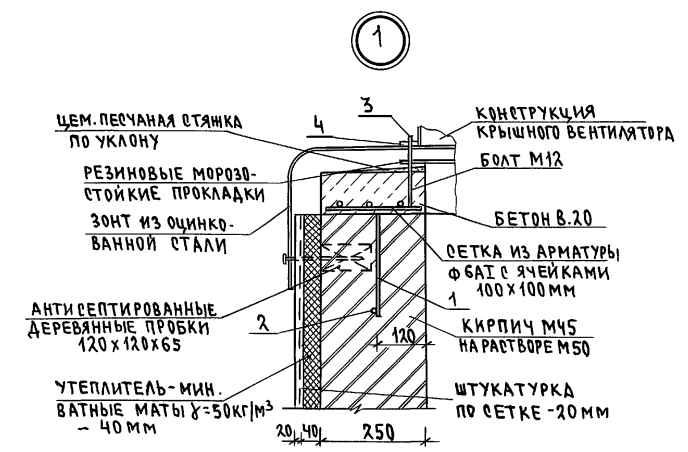 1
ЦЕМ. ПЕСЧАНАЯ СТЯЖКА
ПО УКЛОНУ
РЕЗИНОВЫЕ МОРОЗО-
СТОЙКИЕ ПРОКЛАДКИ
ЗОНТ ИЗ ОЦИНКО-
ВАННОЙ СТАЛИ
АНТИСЕПТИРОВАННЫЕ
ДЕРЕВЯННЫЕ ПРОБКИ
120х120х65
УТЕПЛИТЕЛЬ-МИН.
ВАТНЫЕ МАТЫ γ=50КГ/М³
- 40ММ
4
3
2
1
КОНСТРУКЦИЯ
КРЫШНОГО ВЕНТИЛЯТОРА
БОЛТ М12
БЕТОН В.20
СЕТКА ИЗ АРМАТУРЫ
Ф6АI С ЯЧЕЙКАМИ
100х100ММ
КИРПИЧ М45
НА РАСТВОРЕ М50
ШТУКАТУРКА
ПО СЕТКЕ-20ММ
120
20
40
250